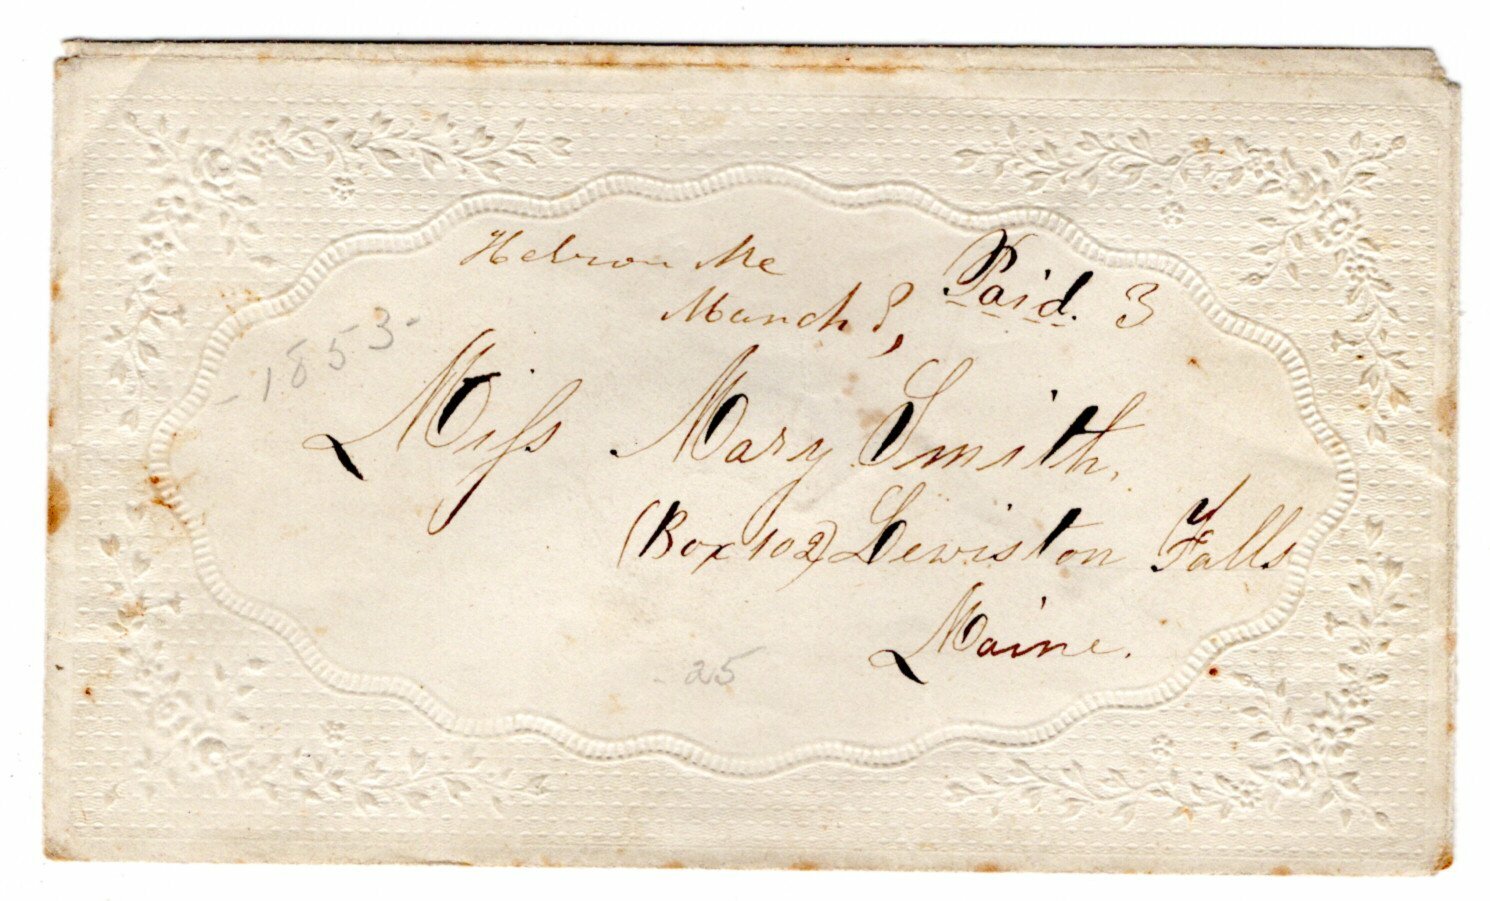 Hebron Me
March 8, Paid. 3
- 1853 -
Miss Mary Smith,
(Box 102) Lewiston Falls
Maine.
- 25